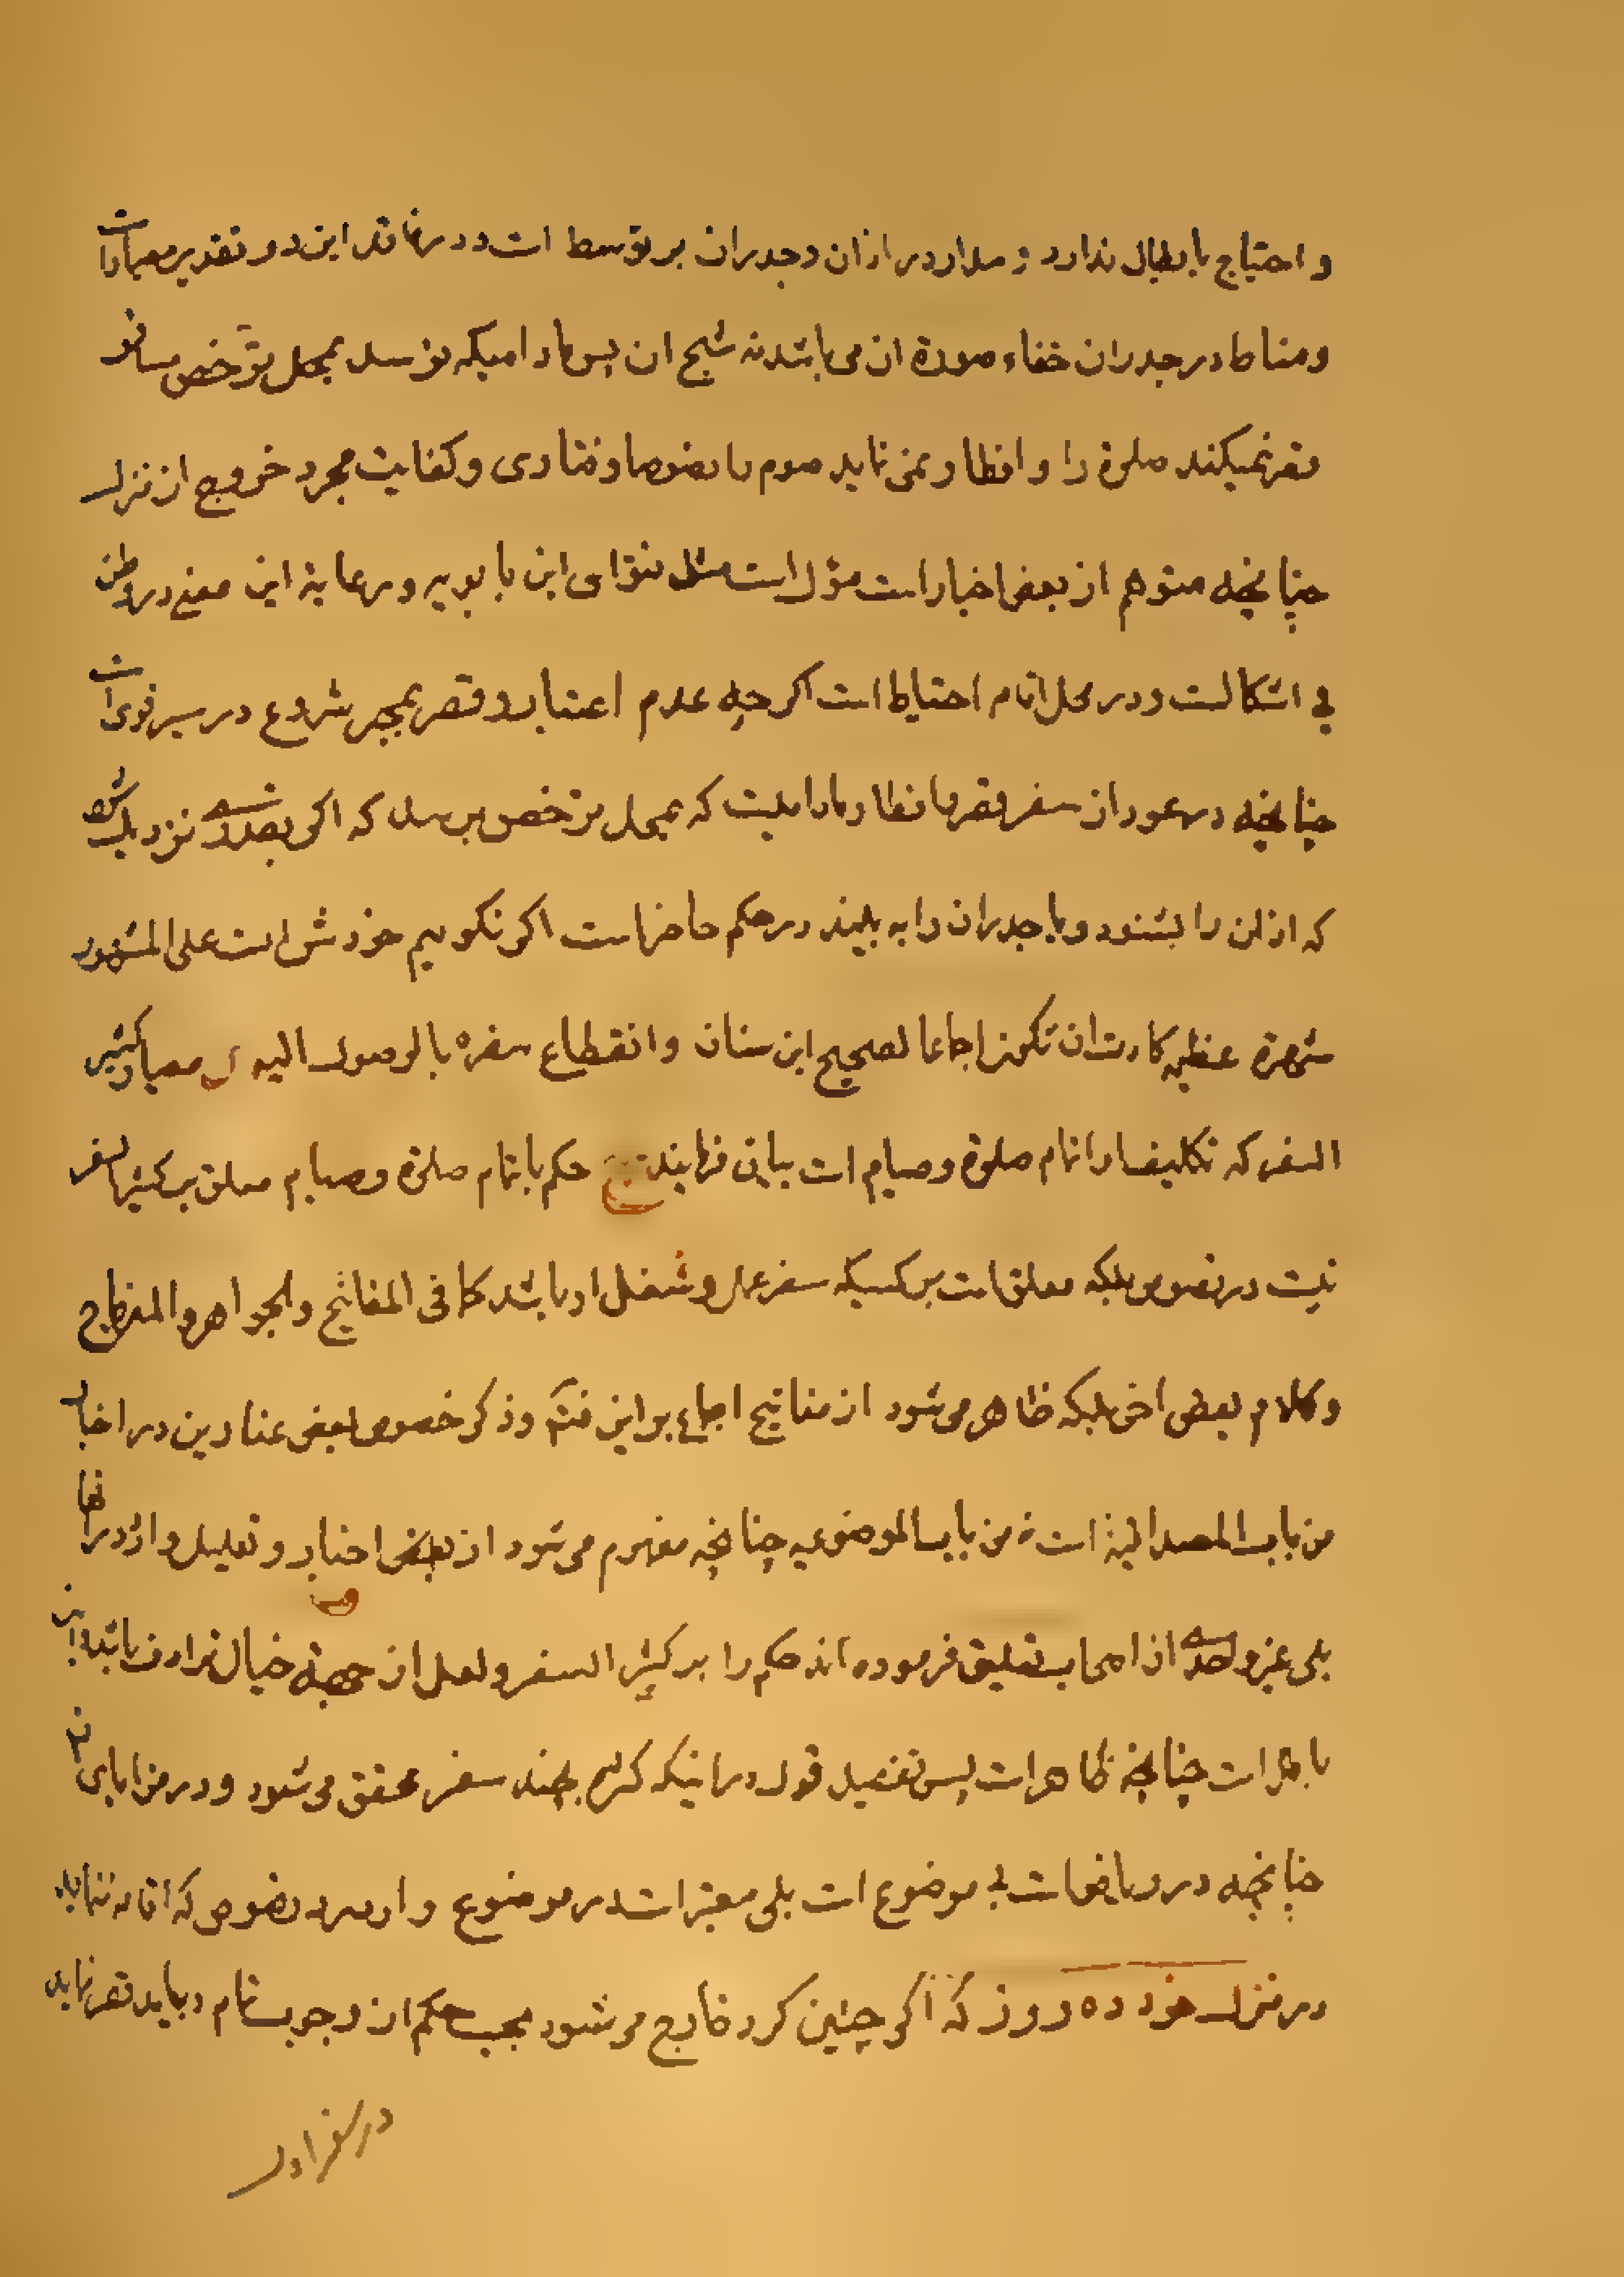 و احتیاج بابطال ندارد و مدار در اذان و جدران بر توسط است و در ماند این دو تقدیر معیار است
و مناط در جدران خفاء صورة ان می باشد نه شبح ان پس مادامیکه نرسد بمحل ترخص مسافر
قصر نمیکند صلوة را و افطار نمی نماید صوم را نصوصا و فتاوی و کفایت مجرد خروج از منزل
چنانچه متوهم از بعض اخبار است مؤل است مثل فتوای ابن بابویه و رعایة این معنی در وطن
فی اشکالست و در محل اتمام احتیاط است اکرچه عدم اعتبار و قصر بمجرد شروع در سیر قوی است
چنانچه در عود از سفر قصر با افطار مادامیست که بمحل ترخص برسد که اکر بحدی نزدیک شود
که اذان را بشنود و یا جدران را به بیند در حکم حاضر است اکر نکوییم خودش است علی المشهور
شهرة عظیمه کادت ان تکون اجماعا لصحیح ابن سنان و انقطاع سفره بالوصول الیه س معیار کثیر
السفر که تکلیف او اتمام صلوة و صیام است بیان فرمایند ج حکم باتمام صلوة و صیام معلق بر کثیر السفر
نیست در نصوص بلکه معلق است بر کسیکه سفر عمل و شغل او باشد کما فی المفاتیح و الجواهر و المفتاح
و کلام بعض اخر بلکه ظاهر می شود از مفاتیح اجماع بر این فتم و ذکر خصوص بعض عناوین در اخبار
من باب المصداقیة است نه من باب الموضوعیه چنانچه مفهوم می شود از بعض اخبار و تعلیل وارد در انها
بلی غیر واحدی از اصحاب تعلیق فرموده اند حکم را بر کثیر السفر و لعل از جهة خیال ترادف باشد و این
باطل است چنانچه ظاهر است پس تفصیل قول در اینکه کثیر بچند سفر محقق می شود و در من ابای
چنانچه در ریاض است بی موضوع است بلی معتبر است در موضوع وارد در نصوص که اقامه ننماید
در منزل خود ده روز که اکر چنین کرد خارج می شود بحسب حکم از وجوب اتمام و باید قصر نماید
در سفر اول